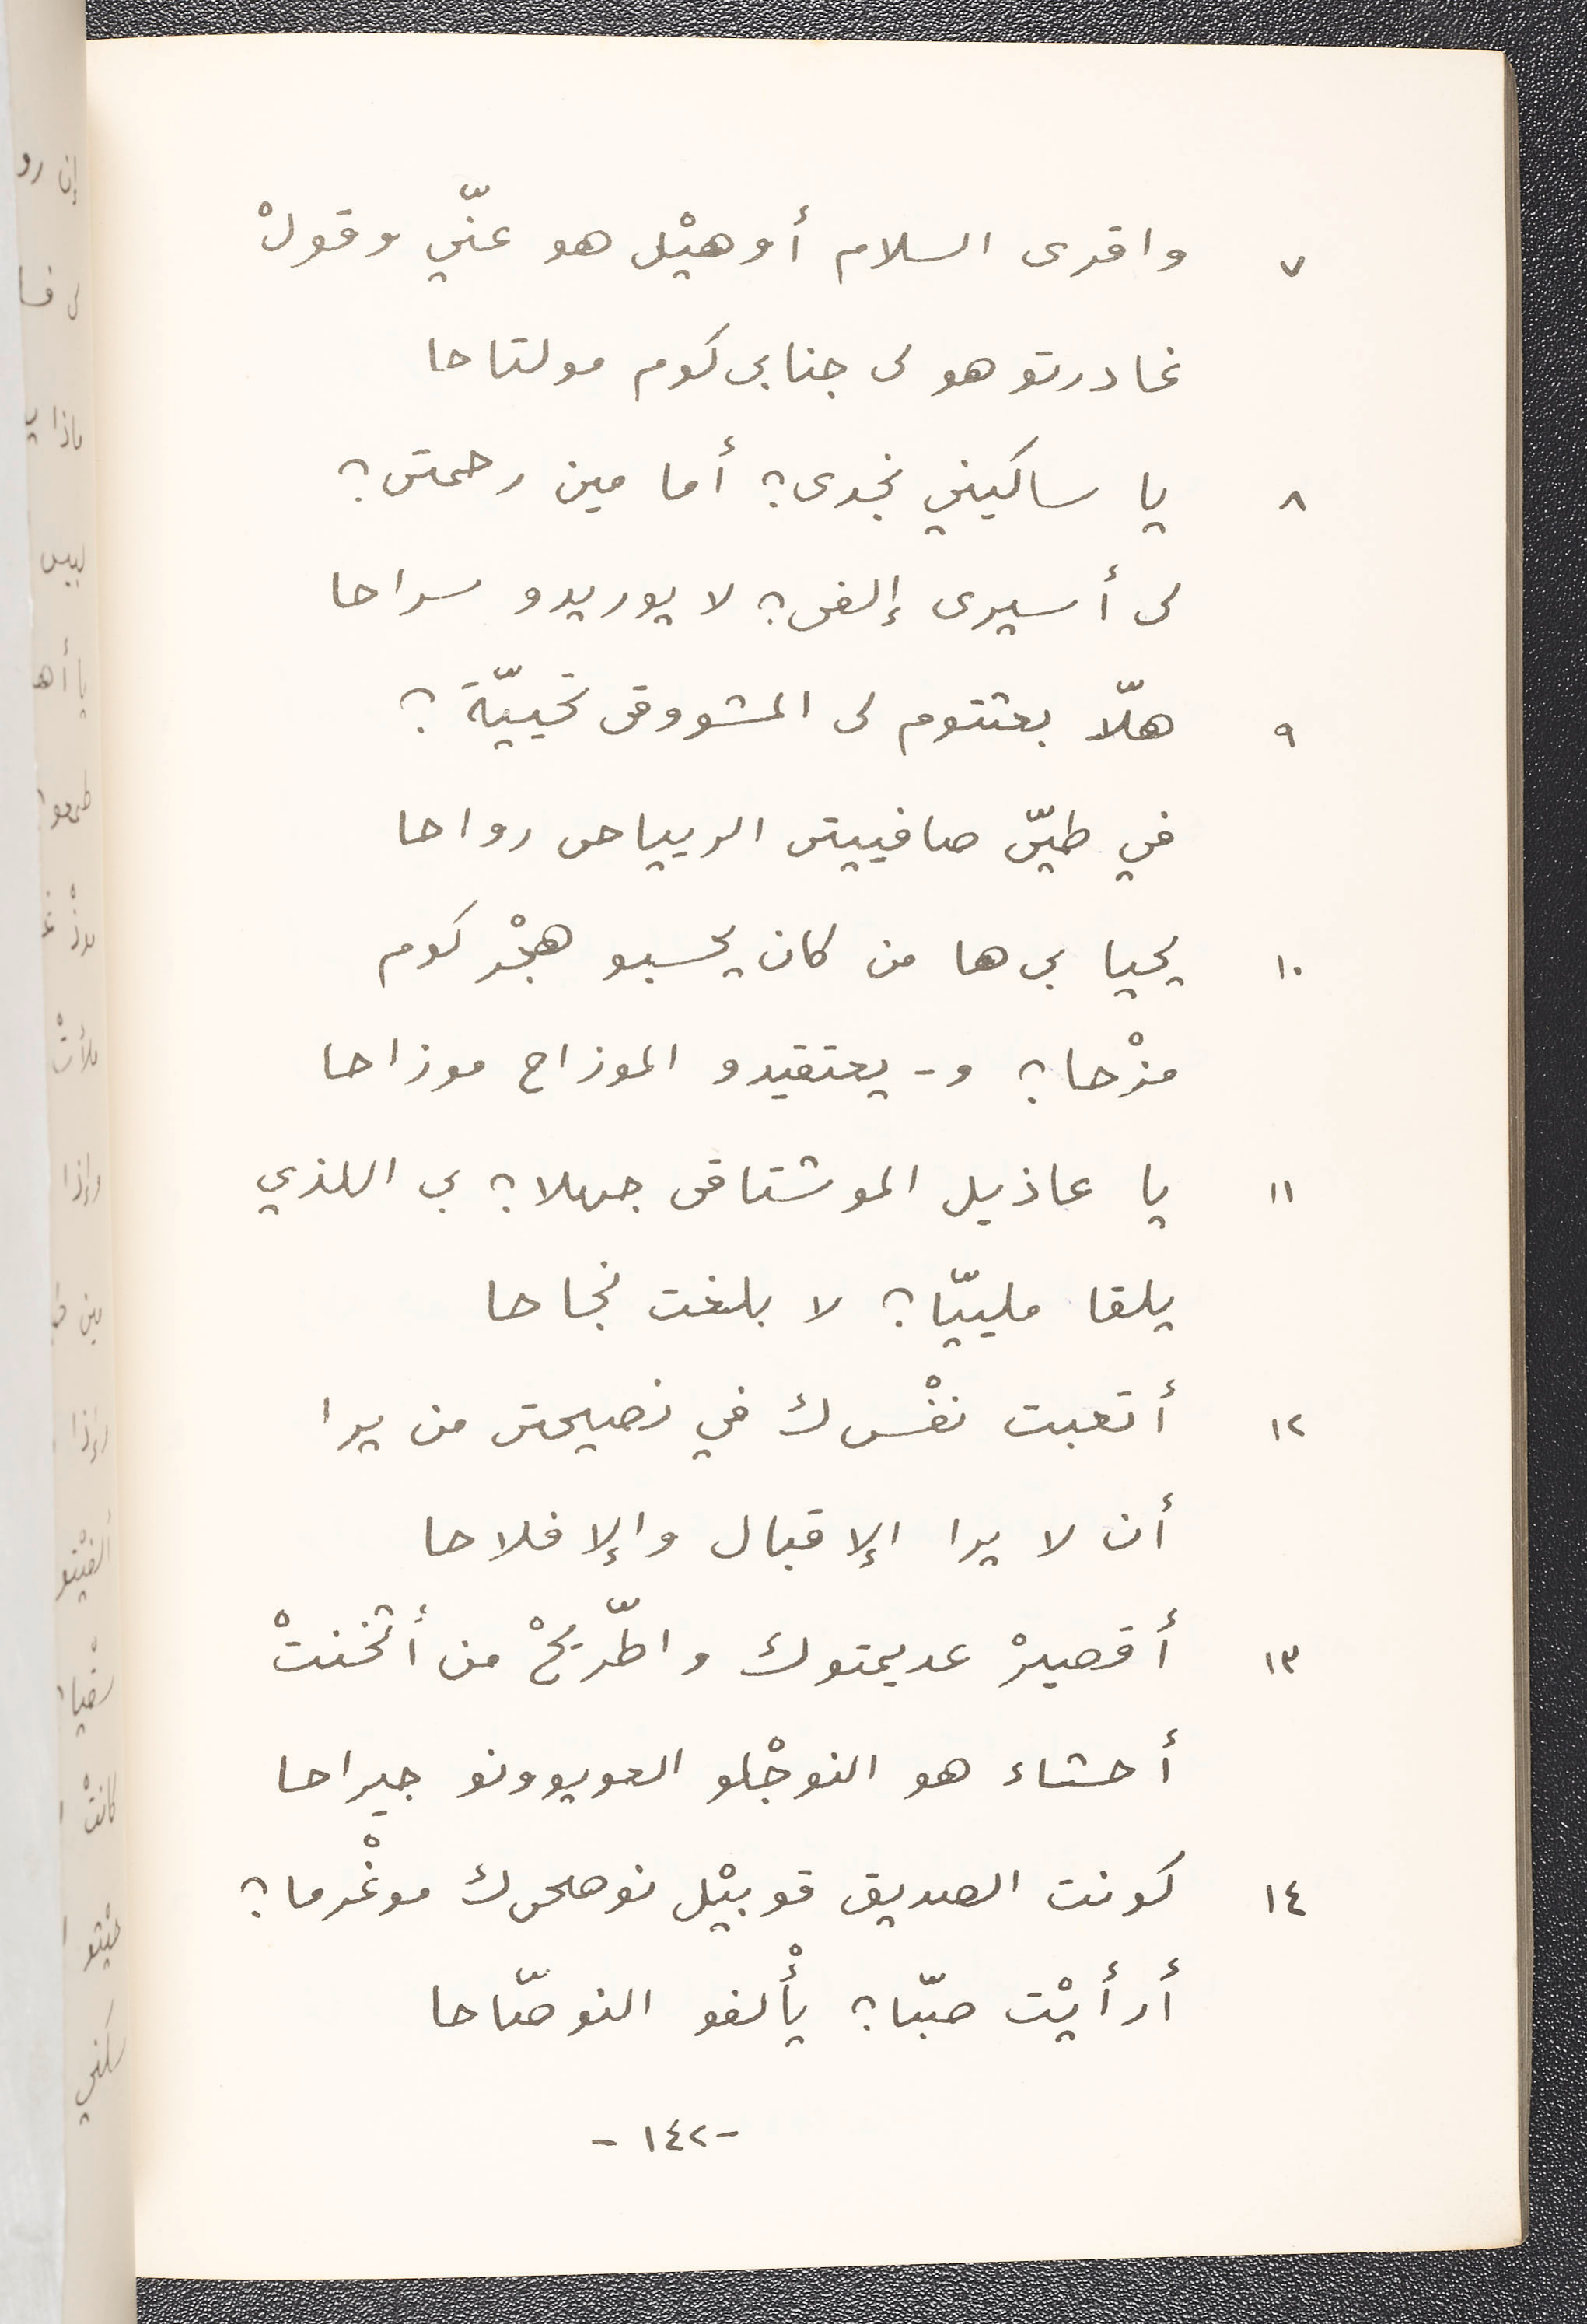 ٧ واقرى السلام أوهيْل هو عنّي وقولْ
غادرتو هو لى جنابى كوم مولتاحا
٨ يا ساكيني نجدى؟ أما مين رحمتن؟
لى أسيرى إلفن؟ لا يوريدو سراحا
٩ هلّا بعثتوم لى المشووقى تحييّةَ؟
في طيّى صافييتى الريياحى رواحا
١٠ يحيا بى ها من كان يحسبو هجْركوم
مزْحا؟ و- يعتقيدو الموزاح موزاحا
١١ يا عاذيل الموشتاقى جهلا؟ بى اللذي
يلقا ملييّا؟ لا بلغت نجاحا
١٢ أتعبت نفْسك في نصيحتى من يرا
أن لا يرا الإقبال والإفلاحا
١٣ أقصيرْ عديمتوك واطّريحْ من أثخنتْ
أحشاء هو النوجْلو العويوونو جيراحا
١٤ كونت الصديق قوبيْل نوصحىك موغْرما؟
أرأيْت صبّا؟ يأْلفو النوصّاحا
-١٤٢-
إن رو
لى فسا
ماذا ي
ليس
يا أها
وإذا
مين ط
وإذا
ألفيْتو
كانتْ ا